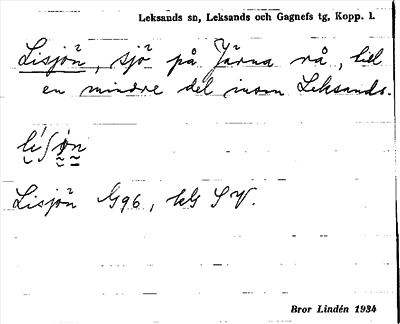 Leksands sn, Leksands och Gagnefs tg, Kopp. l.
Lisjön, sjö på Järna rå, till
en mindre del inom Leksands.
Lisjön G96, bl SV.
Bror Lindén 1934